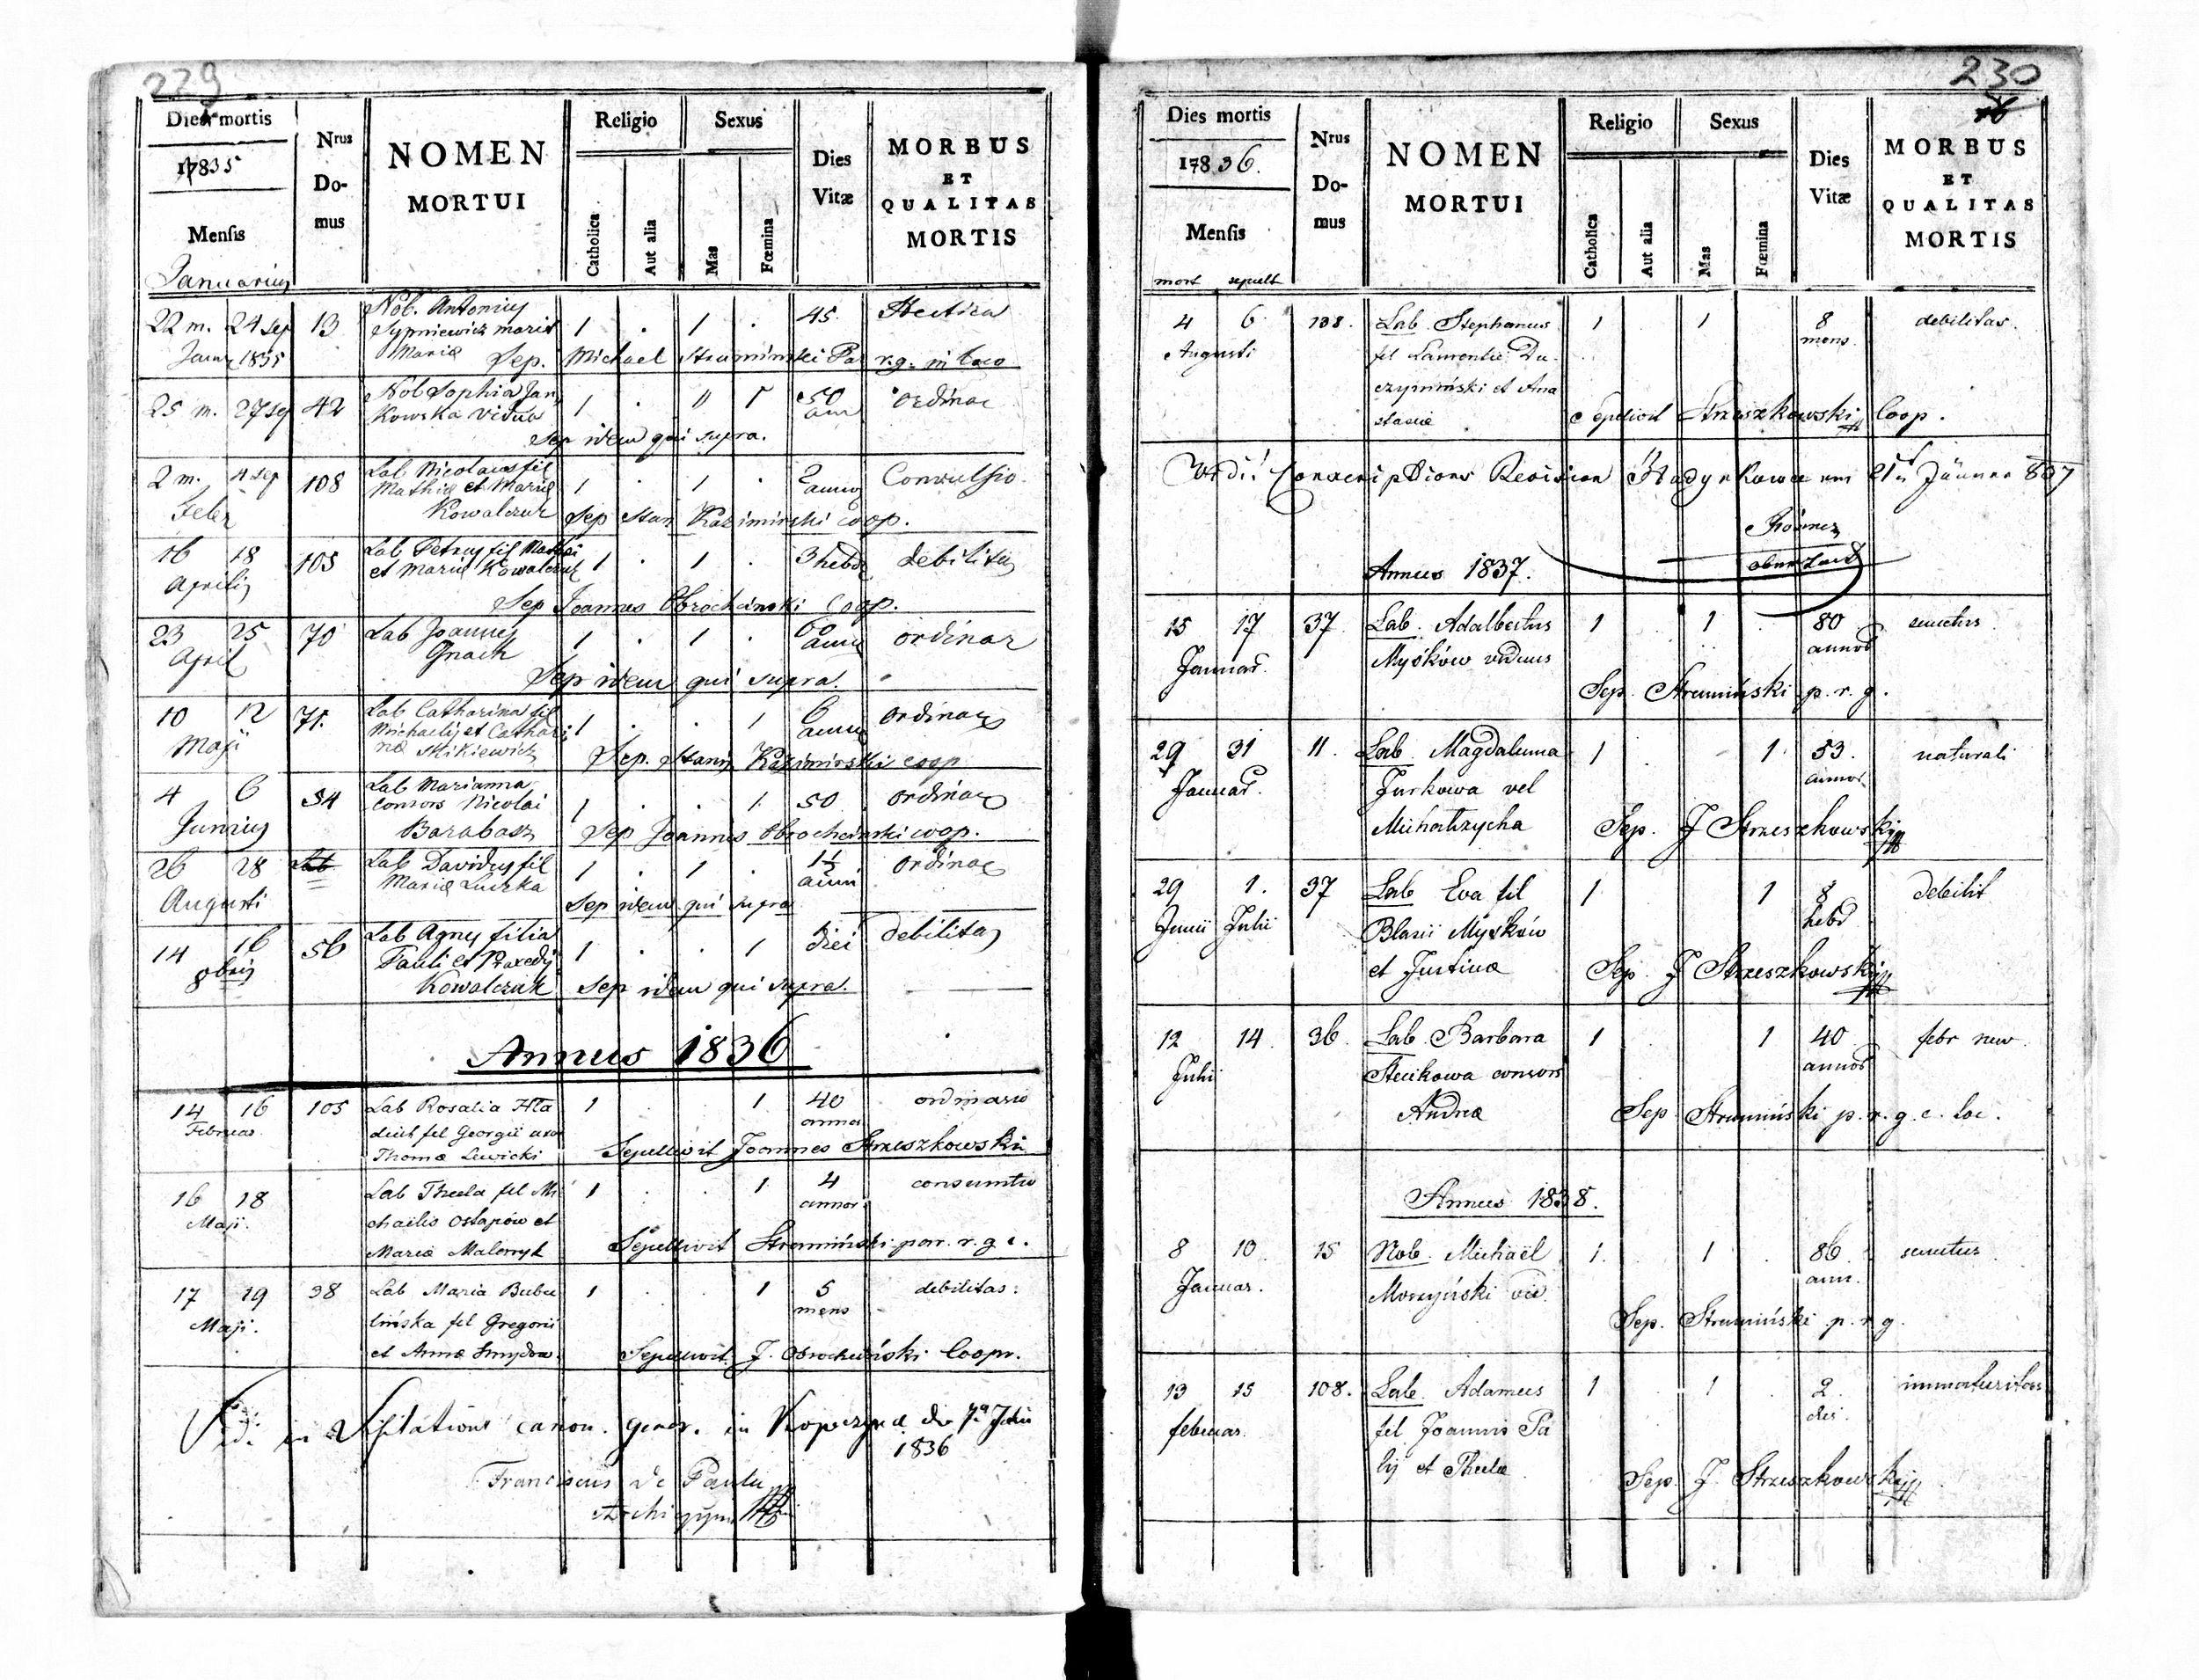 229
Dies mortis
17835
Mensis
Januarius
Nrus Do-mus
NOMEN
MORTUI
Religio
Catholica
Aut alia
Sexus
Mas
Fœmina
Dies
Vitæ
MORBUS
ET
QUALITAS
MORTIS
22 m. 24 sep 13 Nob. Antonius 1 . 1 . 45 Hectica
Sypniewicz marit
Janu 1835 Mariæ Sep. Michael Strumiński Par r.g. in loco
25 m. 27 sep 42 Nob Sophia Jan 1 . " 1 50 ordinar
kowska vidua
Sep idem qui supra.
2 m. 4 sep 108 Lab Nicolaus fil 1 . 1 . 2 Convulsio
Mathiæ et Mariæ
Febr Kowalczuk Sep Stan Kazimirski coop.
16 18 105 Lab Petrus fil Mathei 1 . 1 . 3 hebd debilitas
et Mariæ Kowalczuk
Aprilis
Sep Joannes Obrochcinski Coop.
23 25 70 Lab Joannes 1 . 1 . 60 ordinar
April Gnach
Sep idem qui supra.
10 12 71. Lab Catharina fil 1 . . 1 6 ordinar
Maji Michaelis et Cathari
næ Skikiewicz Sep. Stanis Kazimirski coop
4 6 54 Lab Marianna 1 . . 1. 50 ordinar
consors Nicolai
Junius Barabasz Sep Joannes Obrochcinski coop.
26 28 Lab Davidus fil 1 . 1 . 1½ ordinar
Mariæ Luczka
Augusti Sep idem qui supra
14 16 56 Lab Agnes filia 1 . . 1 diei debilitas
8bris Pauli et Praxedis
Kowalczuk Sep idem qui supra.
Annus 1836
14 16 105 Lab Rosalia Hla 1 . . 1 40 ordinario
Februar. annor
Thomæ Lewicki Sepelivit Joannes Strzeszkowski
16 18 Lab Thecla fil Mi 1 . . 1. 4 consumtio
Maji. chaëlis Ostapów et annor.
Mariæ Sepelivit Strumiński par. r. g c.
17 19 38 Lab Maria Bubu 1 . . 1 5 debilitas.
Maji. lińska fil Gregorii mens
et Annæ Sepelivit J. Obrochciński Coopr.
Vidi in Visitatione canon. gener. in Kopeczynce die 7a Julii
1836
Franciscus de Paula
230
Dies mortis
17836.
Mensis
mort sepult
Nrus Do-mus
NOMEN
MORTUI
Religio
Catholica
Aut alia
Sexus
Mas
Fœmina
Dies
Vitæ
MORBUS
ET
QUALITAS
MORTIS
4 6 138. Lab. Stephanus 1 1 8 debilitas.
Augusti fil Laurentii Du- mens.
czymiński et Ana
stasiæ Sepelivit Strzeszkowski Coop.
Vidi! Conscriptions Revision Hadynkowce am 21t Jänner 837
Annus 1837.
15 17 37 Lab. Adalbertus 1 . 1 . 80 senectus
Januar. Myśków viduus annor
Sep. Strumiński p. r. g.
29 31 11. Lab Magdalena 1 . . 1 53. naturali
Januar. Jurkowa vel annor.
Michalzycha Sep. J Strzeszkowski
29 1. 37 Lab Eva fil 1 1 8 debilit
Junii Julii Blasii Myśków hebd
et Justinæ Sep J Strzeszkowski
12 14 36. Lab. Barbara 1 1 40 febr nerv.
Julii Stecikowa consors annor
Andreæ Sep Strumiński p. r. g. c. loc.
Annus 1838.
8 10 15 Nob. Michaël 1. . 1 . 86 senectus
Januar. vid. ann.
Sep. Strumiński p. r g.
13 15 108. Lab. Adamus 1 . 1 . 2 immaturitas
februar. fil Joannis Pa diei.
lij et Theclæ Sep. J. Strzeszkowski